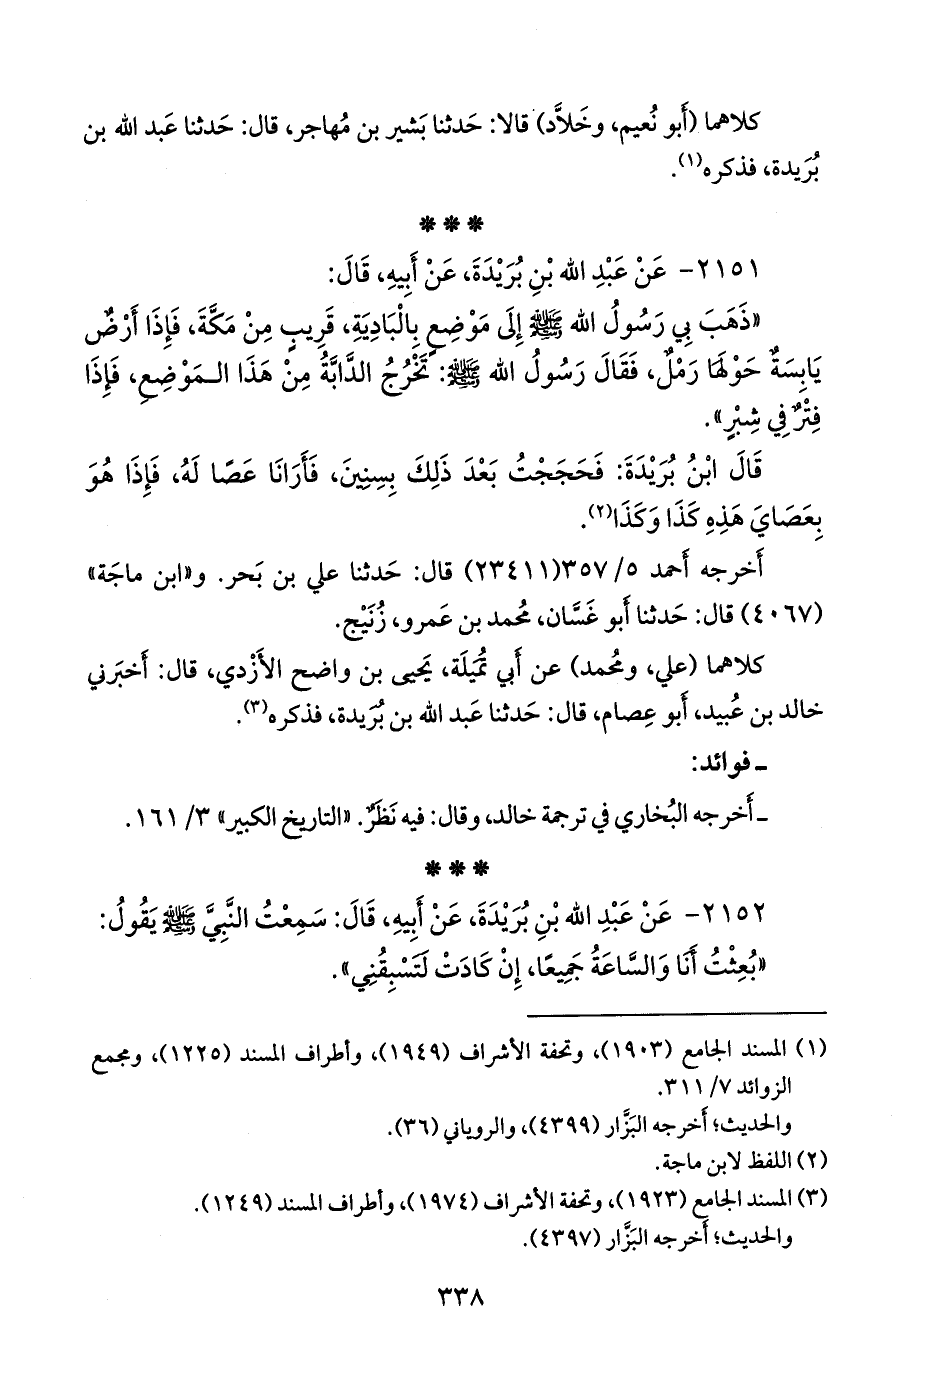 كلاهما (أَبو نُعيم، وخَلاَّد) قالا: حَدثنا بَشير بن مُهاجر، قال: حَدثنا عَبد الله بن
بُرَيدة، فذكره(١).
***
٢١٥١- عَنْ عَبْدِ الله بْنِ بُرَيْدَةَ، عَنْ أَبِيهِ، قَالَ:
«ذَهَبَ بِي رَسُولُ الله ﷺ إِلَى مَوْضِعٍ بِالْبَادِيَةِ، قَرِيبٍ مِنْ مَكَّةَ، فَإِذَا أَرْضٌ
يَابِسَةٌ حَوْلَهَا رَمْلٌ، فَقَالَ رَسُولُ الله ﷺ: تَخْرُجُ الدَّابَّةُ مِنْ هَذَا الـمَوْضِعِ، فَإِذَا
فِتْرٌ فِي شِبْرٍ».
قَالَ ابْنُ بُرَيْدَةَ: فَحَجَجْتُ بَعْدَ ذَلِكَ بِسِنِينَ، فَأَرَانَا عَصًا لَهُ، فَإِذَا هُوَ
بِعَصَايَ هَذِهِ كَذَا وَكَذَا(٢).
أَخرجه أَحمد ٥/ ٣٥٧(٢٣٤١١) قال: حَدثنا علي بن بَحر. و«ابن ماجَة»
(٤٠٦٧) قال: حَدثنا أَبو غَسَّان، مُحمد بن عَمرو، زُنَيْج.
كلاهما (علي، ومُحمد) عن أَبي تُمَيلَة، يَحيى بن واضح الأَزْدي، قال: أَخبَرني
خالد بن عُبيد، أَبو عِصام، قال: حَدثنا عَبد الله بن بُرَيدة، فذكره(٣).
ـ فوائد:
ـ أَخرجه البُخاري في ترجمة خالد، وقال: فيه نَظَرٌ. «التاريخ الكبير» ٣/ ١٦١.
***
٢١٥٢- عَنْ عَبْدِ الله بْنِ بُرَيْدَةَ، عَنْ أَبِيهِ، قَالَ: سَمِعْتُ النَّبِيَّ ﷺ يَقُولُ:
«بُعِثْتُ أَنَا وَالسَّاعَةُ جَمِيعًا، إِنْ كَادَتْ لَتَسْبِقُنِي».
(١) المسند الجامع (١٩٠٣)، وتحفة الأشراف (١٩٤٩)، وأطراف المسند (١٢٢٥)، ومجمع
الزوائد ٧/ ٣١١.
والحديث؛ أَخرجه البَزَّار (٤٣٩٩)، والروياني (٣٦).
(٢) اللفظ لابن ماجة.
(٣) المسند الجامع (١٩٢٣)، وتحفة الأشراف (١٩٧٤)، وأطراف المسند (١٢٤٩).
والحديث؛ أَخرجه البَزَّار (٤٣٩٧).
٣٣٨